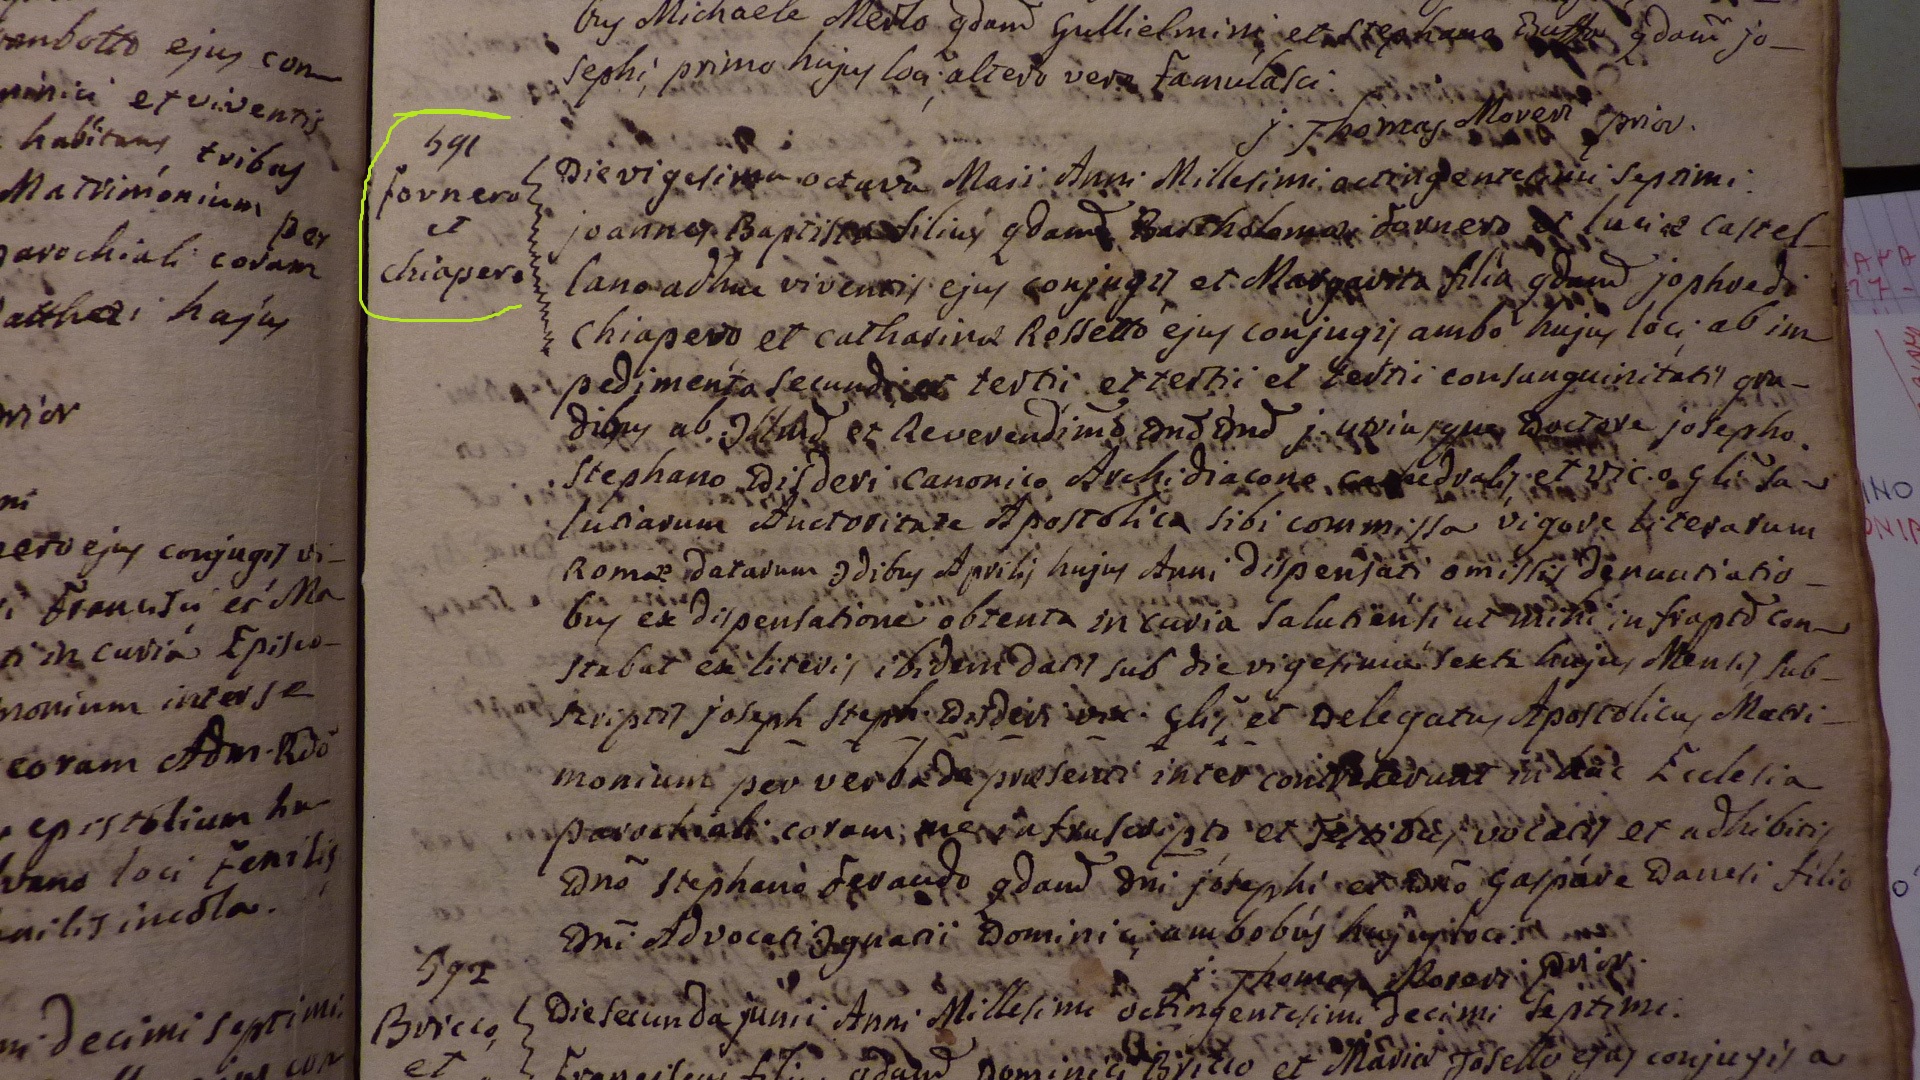 anbotto ejus con
minici et viventis
habitans tribus
Matrimonium per
parochiali coram
Matthei hujus
ejus conjugis vi-
Francisci et Ma
in curia Episco-
monium inter se
coram Adm. Rdo
epistolium hu-
loci Fenilis
incola.
decimi septimi
bus Michaele Merlo qdam Gullielmini et Stephano Butto qdam jo-
sephi, primo hujus loci, altero vero Famulasci.
j. Thomas Moreri Prior.
591
Fornero
et
Chiapero
Die vigesima octava Maii Anni Millesimi octingentesimi septimi.
joannes Baptista filius qdam Bartholomaei Fornero et luciae Castel-
lano adhuc viventis ejus conjugis et Margarita filia qdam jophredi
Chiapero et Catharinae Rossetto ejus conjugis ambo hujus loci, ab im
pedimento secundi et tertii et tertii et tertii consanguinitatis gra-
dibus ab Illmo et Reverendimo Dno Dno j. utriusque Doctore josepho
Stephano Disderi Canonico Archidiacono cathedralis et Vic.o gli Sa-
lutiarum Auctoritate Apostolica sibi commissa vigore literarum
Romae datarum Idibus Aprilis hujus Anni dispensati omissis denuntiatio-
bus ex dispensatione obtenta in curia Salutiensi ut mihi infrapto con-
stabat ex literis ibidem datis sub die vigesima sexta hujus Mensis sub-
scriptis joseph Steph. Disderi vic. glis et Delegatus Apostolicus Matri-
monium per verba de praesenti inter contraxerunt in hac Ecclesia
parochiali coram me infrascripto et testibus vocatis et adhibitis
Dno Stephano Ferando qdam Dni josephi et Dno Gaspare Danesi filio
Dni Advocati Ignatii Dominici ambobus hujus loci.
j. Thomas Moreri Prior.
592
Bricco
et
Die secunda junii Anni Millesimi octingentesimi decimi septimi.
Franciscus filius qdam Dominici Bricco et Maria Josello ejus conjugis a